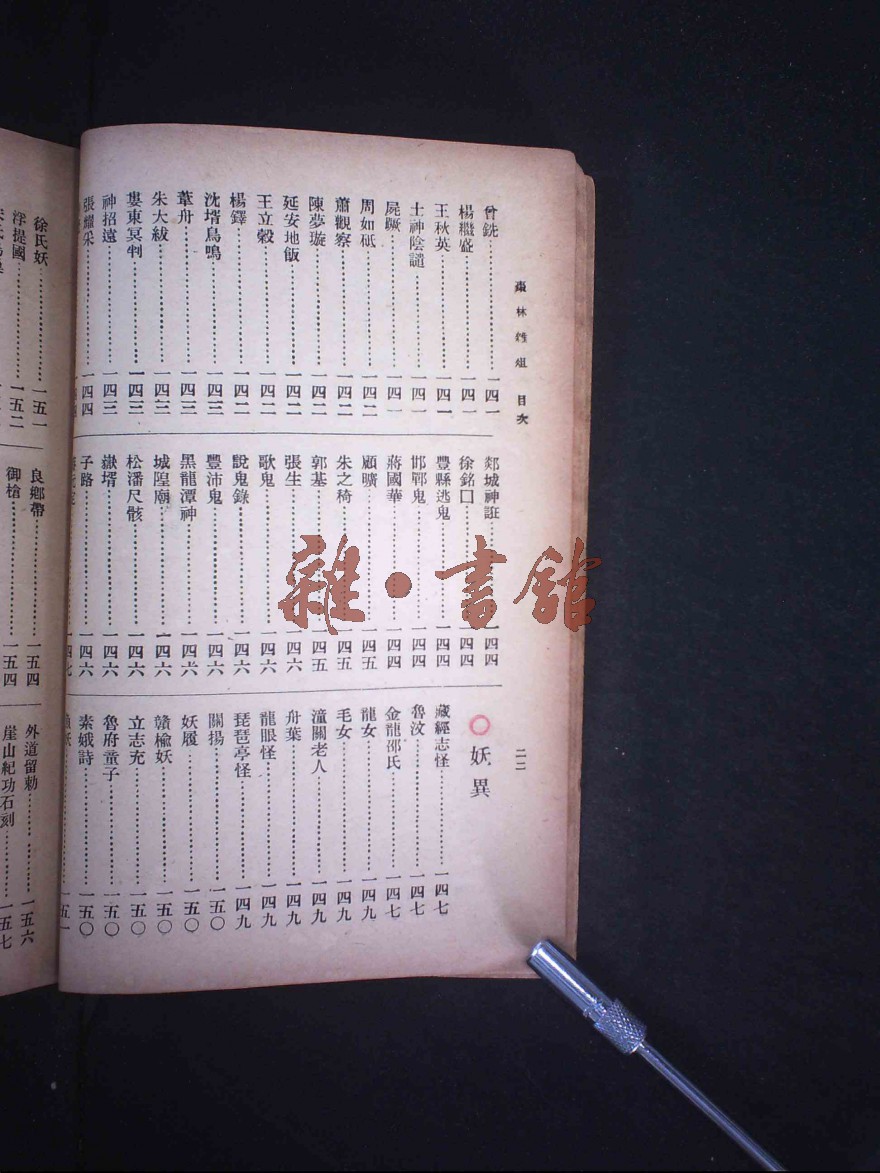 棗林雜俎 目次
二二
曾銑……一四一
楊繼盛……一四一
王秋英……一四一
土神陰譴……一四一
屍蹶……一四一
周如砥……一四二
蕭觀察……一四二
陳夢璇……一四二
延安地飯……一四二
王立轂……一四二
楊鐸……一四二
沈壻鳥鳴……一四三
葦舟……一四三
朱大紱……一四三
婁東冥判……一四三
神招遠……一四四
張耀采……一四四
郯城神誑……一四四
徐銘囗……一四四
豐縣逃鬼……一四四
邯鄲鬼……一四四
蔣國華……一四四
顧曠……一四五
朱之椅……一四五
郭基……一四五
張生……一四六
歌鬼……一四六
說鬼錄……一四六
豐沛鬼……一四六
黑龍潭神……一四六
城隍廟……一四六
松潘尺骸……一四六
嶽壻……一四六
子路……一四六
一四七
○妖異
藏經志怪……一四七
魯汶……一四七
金龍邵氏……一四七
龍女……一四九
毛女……一四九
潼關老人……一四九
舟葉……一四九
龍眼怪……一四九
琵琶亭怪……一四九
關揚……一五〇
妖履……一五〇
贛榆妖……一五〇
立志充……一五〇
魯府童子……一五〇
素娥詩……一五〇
一五一
徐氏妖……一五一
浮提國……一五二
良鄉帶……一五四
御槍……一五四
外道留勅……一五六
崖山紀功石刻……一五七
雜·書館